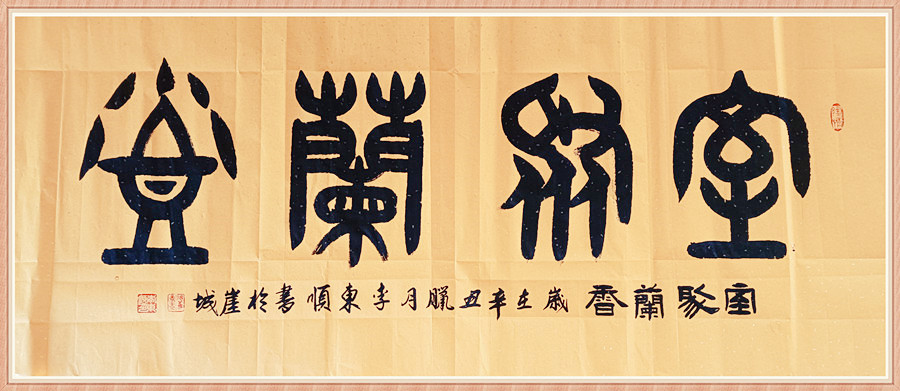 室聚蘭香
室聚蘭香 歲在辛丑臘月李東順書於崖城